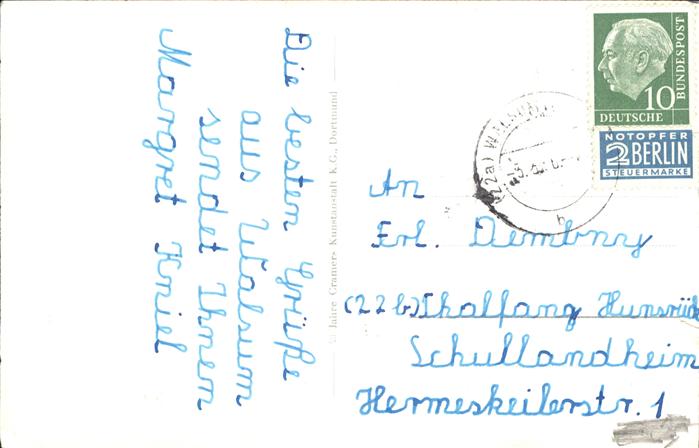 Die besten Grüße
aus Walsum
sendet Ihnen
Margret Kniel
Jahre Cramers Kunstanstalt K.G., Dortmund
10
DEUTSCHE
BUNDESPOST
NOTOPFER
2 BERLIN
STEUERMARKE
(22a) WALSUM
b
An
Frl. Dembny
(22b) Thalfang Hunsrück
Schullandheim
Hermeskeilerstr. 1